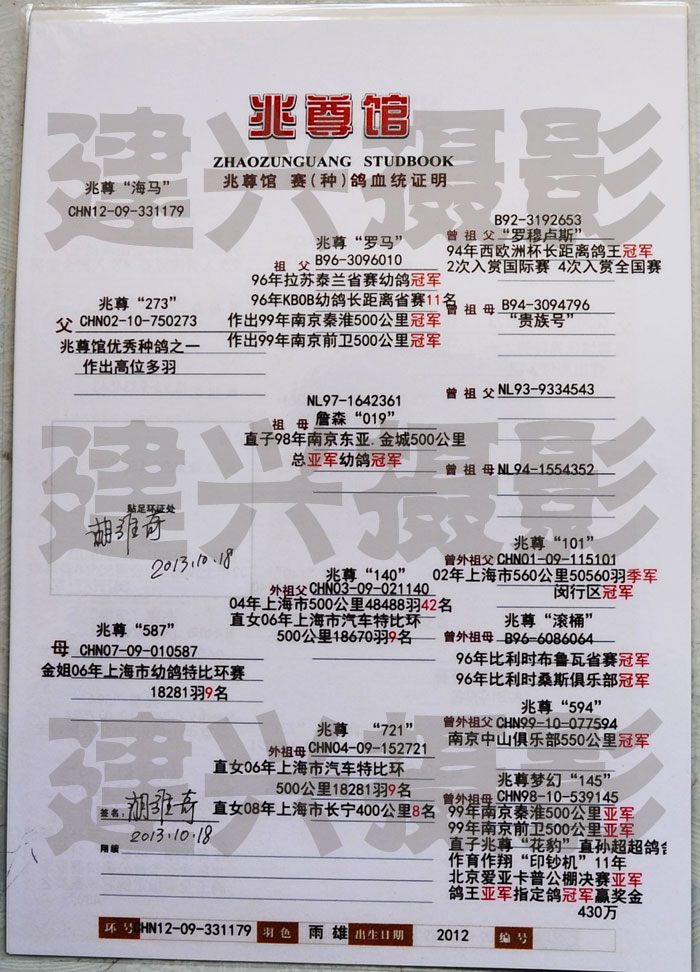 兆尊馆
ZHAOZUNGUANG STUDBOOK
兆尊馆 赛(种)鸽血统证明
建兴摄影
兆尊“海马”
CHN12-09-331179
兆尊“273”
父 CHN02-10-750273
兆尊馆优秀种鸽之一
作出高位多羽
兆尊“罗马”
祖父 B96-3096010
96年拉苏泰兰省赛幼鸽冠军
96年KBOB幼鸽长距离省赛11名
作出99年南京秦淮500公里冠军
作出99年南京前卫500公里冠军
B92-3192653
曾祖父 “罗穆卢斯”
94年西欧洲杯长距离鸽王冠军
2次入赏国际赛 4次入赏全国赛
曾祖母 B94-3094796
“贵族号”
NL97-1642361
祖母 詹森“019”
直子98年南京东亚.金城500公里
总亚军幼鸽冠军
曾祖父 NL93-9334543
曾祖母 NL94-1554352
建兴摄影
贴足环证处
胡雅奇
2013.10.18
兆尊“587”
母 CHN07-09-010587
金姐06年上海市幼鸽特比环赛
18281羽9名
兆尊“140”
外祖父 CHN03-09-021140
04年上海市500公里48488羽42名
直女06年上海市汽车特比环
500公里18670羽9名
兆尊“101”
曾外祖父 CHN01-09-115101
02年上海市560公里50560羽季军
闵行区冠军
兆尊“滚桶”
曾外祖母 B96-6086064
96年比利时布鲁瓦省赛冠军
96年比利时桑斯俱乐部冠军
建兴摄影
兆尊 “721”
外祖母 CHN04-09-152721
直女06年上海市汽车特比环
500公里18281羽9名
直女08年上海市长宁400公里8名
兆尊“594”
曾外祖父 CHN99-10-077594
南京中山俱乐部550公里冠军
兆尊梦幻“145”
曾外祖母 CHN98-10-539145
99年南京秦淮500公里亚军
99年南京前卫500公里亚军
直子兆尊“花豹”直孙超超鸽舍
作育作翔“印钞机”11年
北京爱亚卡普公棚决赛亚军
鸽王亚军指定鸽冠军赢奖金
430万
签名: 胡雅奇
2013.10.18
环号 CHN12-09-331179 羽色 雨雄 出生日期 2012 编号